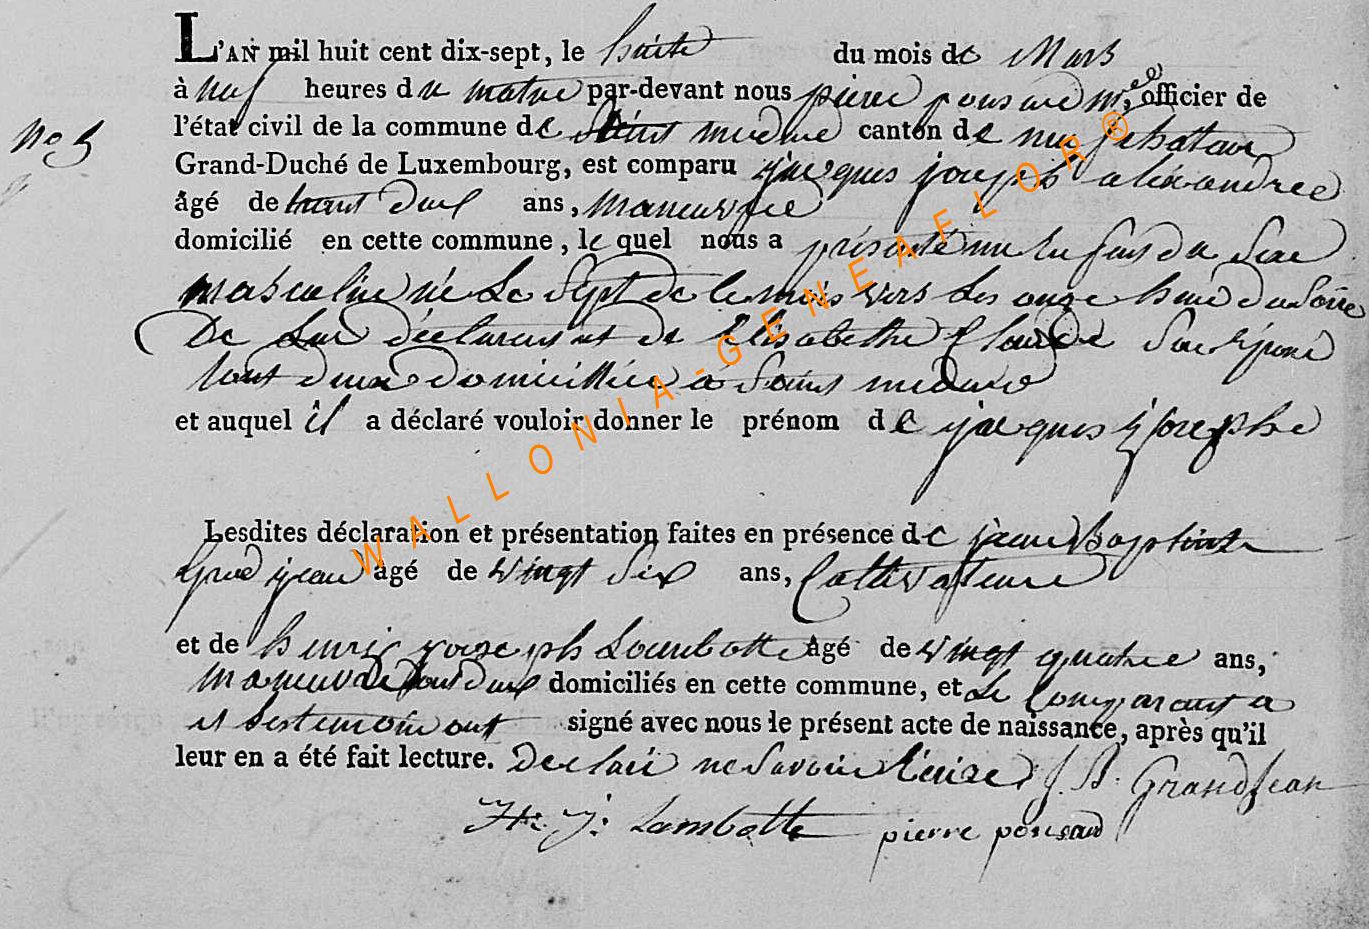 L'AN mil huit cent dix-sept, le huite du mois de Mars
à neuf heures du matin par-devant nous pierre ponsard officier de
No 5
l'état civil de la commune de Saint medard canton de neufchatau
Grand-Duché de Luxembourg, est comparu jacques joseph alexandre
âgé de trant deux ans, maneuvre
domicilié en cette commune, le quel nous a présenté un enfant du sexe
masculin né Le Sept de ce mois vers Les onze heure du Soire
De Lui déclarant et de Elisabethe Son épouse
tout deux domicilliéz a Saint medard
et auquel il a déclaré vouloir donner le prénom de jacques josephe
Lesdites déclaration et présentation faites en présence de jean Baptiste
Grand jean âgé de vingt Six ans, Cultivateure
et de henrie joseph Lambotte âgé de vingt quatre ans,
maneuvre tout deux domiciliés en cette commune, et Le Comparant a
et Les temoin ont signé avec nous le présent acte de naissance, après qu'il
leur en a été fait lecture. Declaré ne Savoir Ecrire J. B. GrandJean
H. J. Lambotte pierre ponsard
WALLONIA-GENEAFLOR®